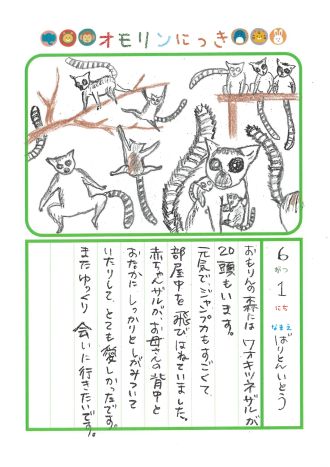 オモリンにっき
6がつ1にち
なまえ ばりとんいとう
おもりんの森には ワオキツネザルが
20頭もいます。
元気で、ジャンプカもすごくて、
部屋中を飛びはねていました。
赤ちゃんザルが、お母さんの背中と
おなかに しっかりと しがみついて
いたりして、とても愛しかったです。
またゆっくり 会いに行きたいです。